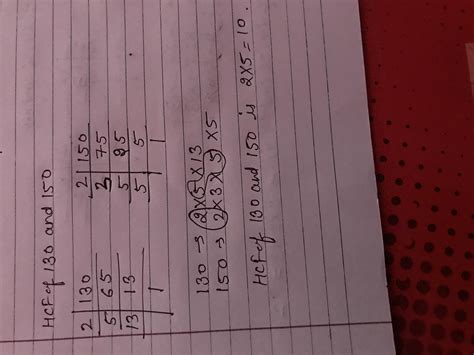 HCF of 130 and 150
2 | 130    2 | 150
5 | 65    3 | 75
13 | 13    5 | 25
1    5 | 5
1
130 → 2×5×13
150 → 2×3×5×5
HCF of 130 and 150 is 2×5=10.